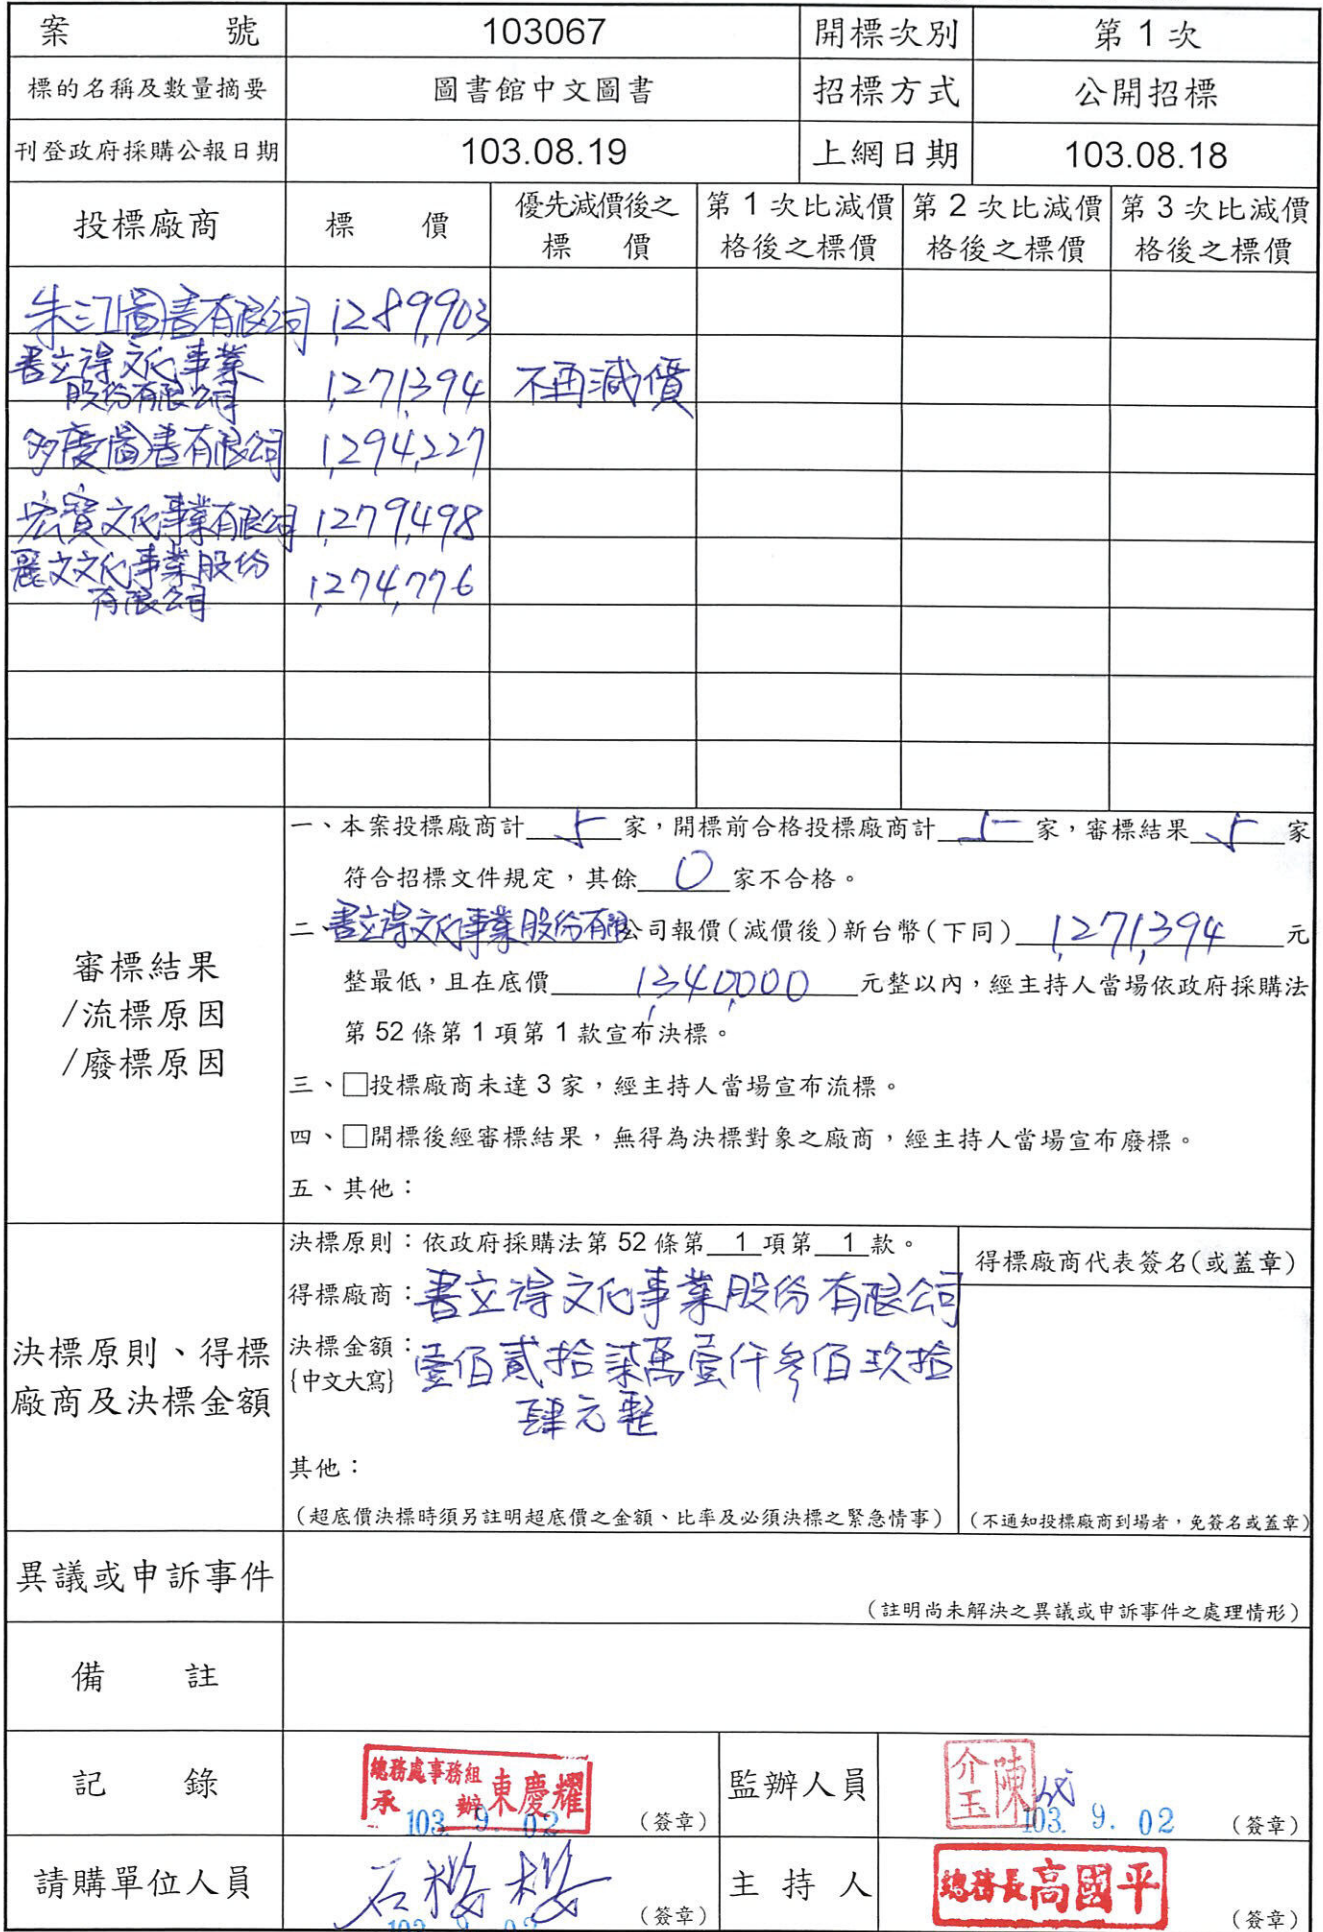 案 號 103067 開標次別 第 1 次
標的名稱及數量摘要 圖書館中文圖書 招標方式 公開招標
刊登政府採購公報日期 103.08.19 上網日期 103.08.18
投標廠商 標 價 優先減價後之標 價 第 1 次比減價格後之標價 第 2 次比減價格後之標價 第 3 次比減價格後之標價
朱江圖書有限公司 1,289,903
書立得文化事業股份有限公司 1,271,394 不再減價
多慶圖書有限公司 1,294,227
宏寶文化事業有限公司 1,279,498
麗文文化事業股份有限公司 1,274,776
審標結果
/流標原因
/廢標原因
一、本案投標廠商計 5 家，開標前合格投標廠商計 5 家，審標結果 5 家
符合招標文件規定，其餘 0 家不合格。
二、書立得文化事業股份有限公司報價(減價後)新台幣(下同) 1,271,394 元
整最低，且在底價 1,340,000 元整以內，經主持人當場依政府採購法
第 52 條第 1 項第 1 款宣布決標。
三、□投標廠商未達 3 家，經主持人當場宣布流標。
四、□開標後經審標結果，無得為決標對象之廠商，經主持人當場宣布廢標。
五、其他：
決標原則、得標
廠商及決標金額
決標原則：依政府採購法第 52 條第 1 項第 1 款。
得標廠商：書立得文化事業股份有限公司
決標金額：壹佰貳拾柒萬壹仟參佰玖拾
{中文大寫}
肆元整
其他：
(超底價決標時須另註明超底價之金額、比率及必須決標之緊急情事)
得標廠商代表簽名(或蓋章)
(不通知投標廠商到場者，免簽名或蓋章)
異議或申訴事件
(註明尚未解決之異議或申訴事件之處理情形)
備 註
記 錄 總務處事務組承辦 東慶耀 103. 9. 02 (簽章)
監辦人員 陳介玉 代 103. 9. 02 (簽章)
請購單位人員 石櫻櫻 103. 9. 02 (簽章)
主 持 人 總務長高國平 (簽章)